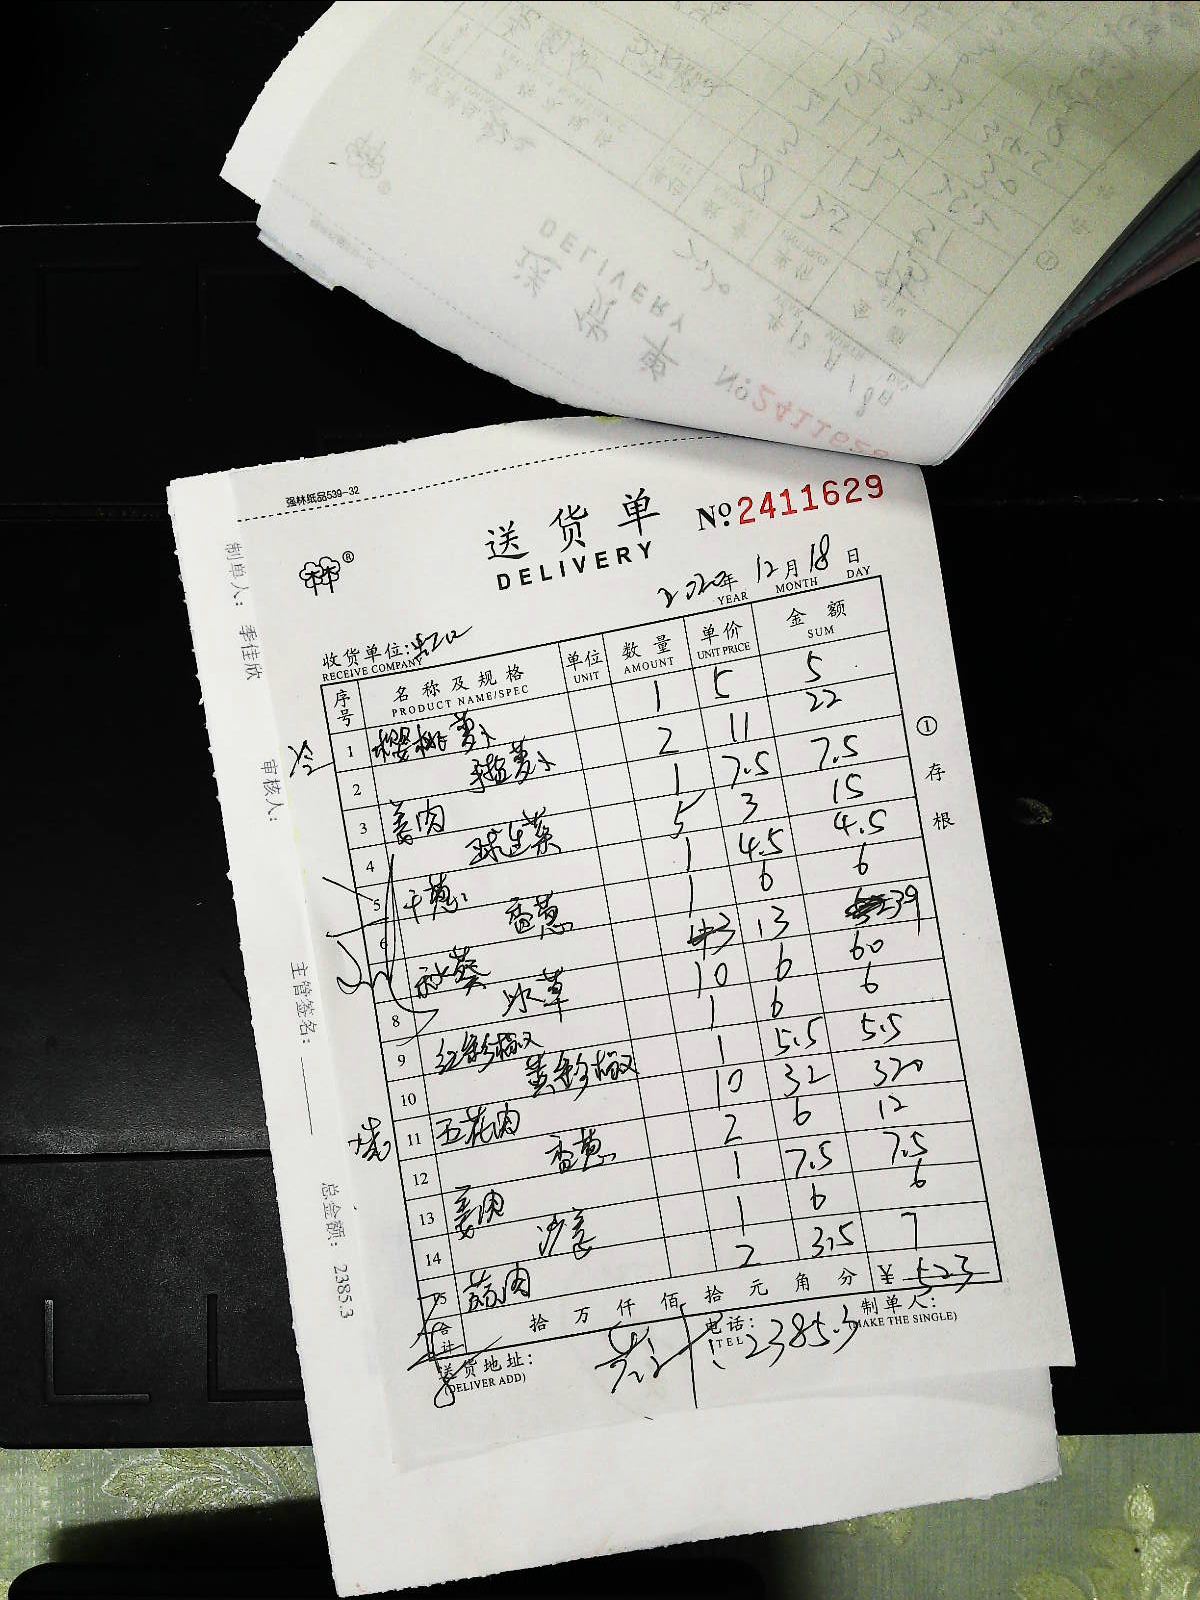 强林纸品539-32
送货单
DELIVERY
№ 2411629
2020年 12月 18日
YEAR MONTH DAY
收货单位: 虹口
RECEIVE COMPANY
序号 名称及规格 单位 数量 单价 金额
PRODUCT NAME/SPEC UNIT AMOUNT UNIT PRICE SUM
1 樱桃萝卜 1 5 5
2 萝卜 2 11 22
3 姜肉 1 7.5 7.5
4 球生菜 5 3 15
5 干葱 1 4.5 4.5
6 香葱 1 6 6
秋葵 3 13 39
8 冰草 10 6 60
9 红彩椒 1 6 6
10 黄彩椒 1 5.5 5.5
11 五花肉 10 32 320
12 香葱 2 6 12
13 姜肉 1 7.5 7.5
14 沙姜 1 6 6
15 蒜肉 2 3.5 7
合计 拾 万 仟 佰 拾 元 角 分 ¥ 523
送货地址:
(DELIVER ADD)
电话:
TEL
2385.3
制单人:
(MAKE THE SINGLE)
① 存根
制单人: 季佳欣
审核人:
主管签名:
总金额: 2385.3